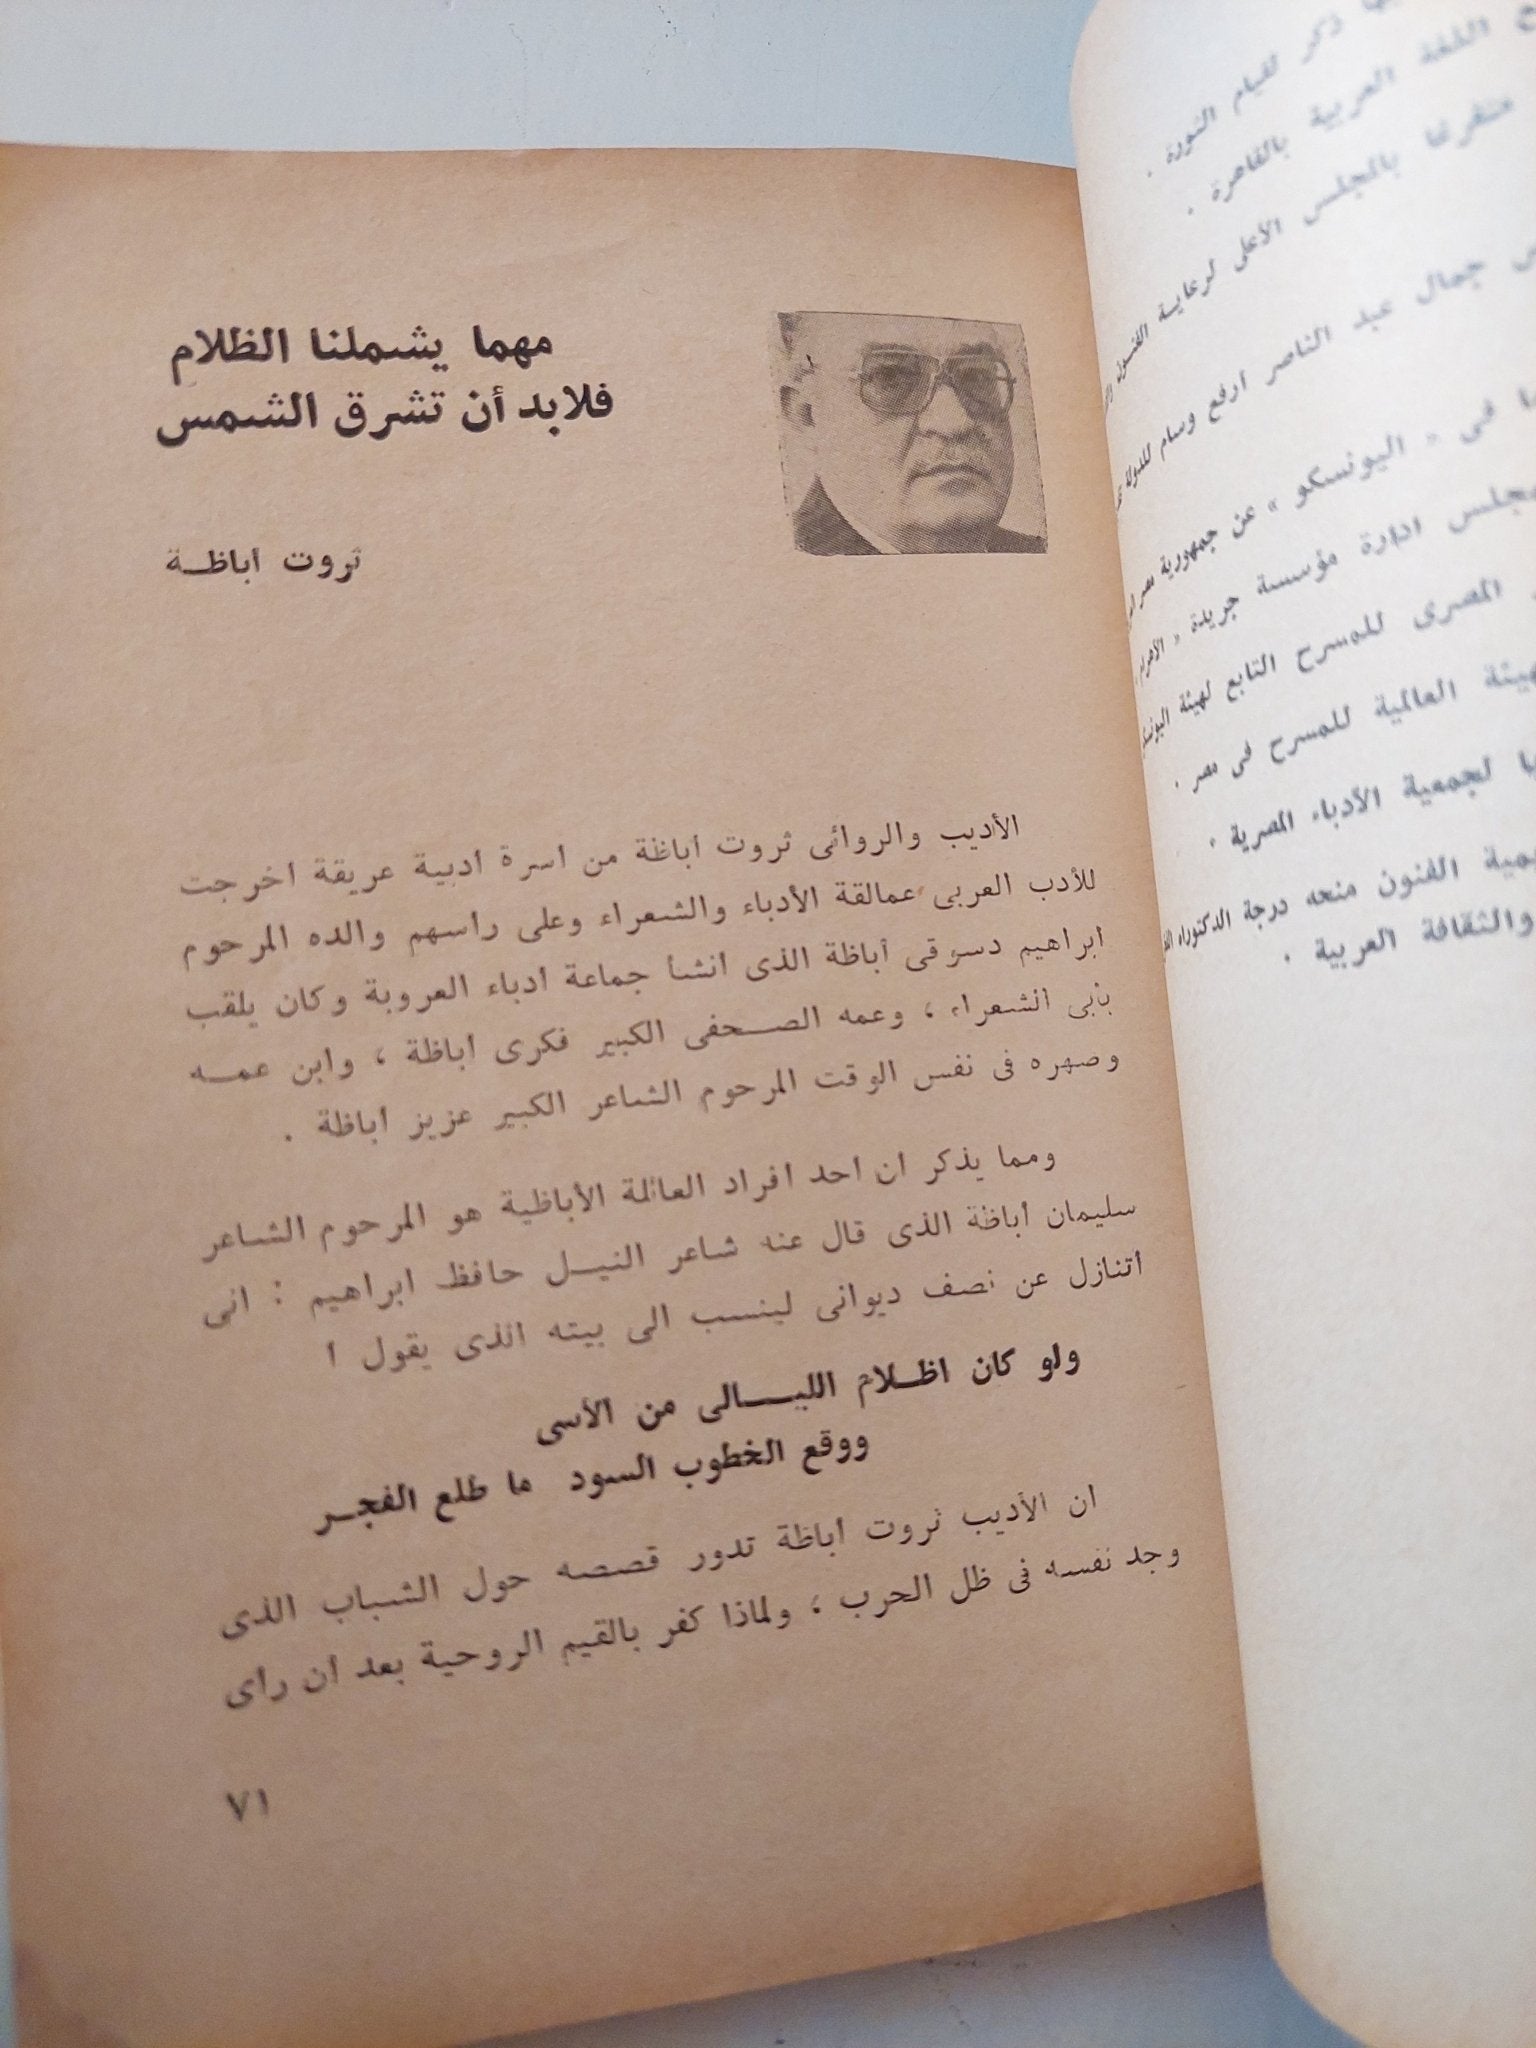 مهما يشملنا الظلام
فلابد أن تشرق الشمس
ثروت اباظـة
الأديب والروائى ثروت اباظة من اسرة ادبية عريقة اخرجت
للأدب العربى عمالقة الأدباء والشعراء وعلى راسهم والده المرحوم
ابراهيم دسوقى اباظة الذى انشأ جماعة ادباء العروبة وكان يلقب
بأبى الشعراء ، وعمه الصـحفى الكبير فكرى اباظة ، وابن عمـه
وصهره فى نفس الوقت المرحوم الشاعر الكبير عزيز اباظة .
ومما يذكر ان احد افراد العائلة الأباظية هو المرحوم الشاعر
سليمان اباظة الذى قال عنه شاعر النيـل حافظ ابراهيم : انى
اتنازل عن نصف ديوانى لينسب الى بيته الذى يقول ا
ولو كان اظـلام الليـالى من الأسى
ووقع الخطوب السود ما طلع الفجـر
ان الأديب ثروت اباظة تدور قصصه حول الشباب الذى
وجد نفسه فى ظل الحرب ، ولماذا كفر بالقيم الروحية بعد ان راى
٧١
ذكر لقيام الثورة .
اللغة العربية بالقاهرة .
متفرغا بالمجلس الأعلى لرعايـة الفنـون
جمال عبد الناصر ارفع وسام للدولة
فى « اليونسكو » عن جمهورية مصر
مجلس ادارة مؤسسة جريدة « الأهرام
المصرى للمسرح التابع لهيئة اليونسكو
العالمية للمسرح فى مصر .
لجمعية الأدباء المصرية .
الفنون منحه درجة الدكتوراه
والثقافة العربية .